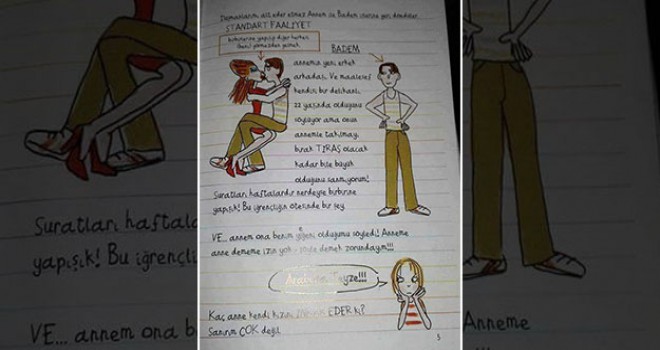 ait eder etmez Annem ile Badem işlerine geri döndüler.
STANDART FAALİYET
birbirlerine yapışıp diğer herkesi
görmezden gelmek
BADEM
annemin yeni erkek
arkadaşı. Ve maalesef
kendisi bir delikanlı.
22 yaşında olduğunu
söylüyor ama onun
annemle takılmayı
bırak TIRAŞ olacak
kadar bile büyük
olduğunu sanmıyorum!
Suratları haftalardır nerdeyse birbirine
yapışık! Bu iğrençliğin ötesinde bir şey.
VE... annem ona benim yeğeni olduğumu söyledi! Anneme
anne dememe izin yok - şöyle demek zorundayım!!!
Teyze!!!
Kaç anne kendi kızını EDER ki?
Sanırım ÇOK değil.
5
Suratları hafta
yapışık! Bu iğrençli
VE... annem ona b
Anneme